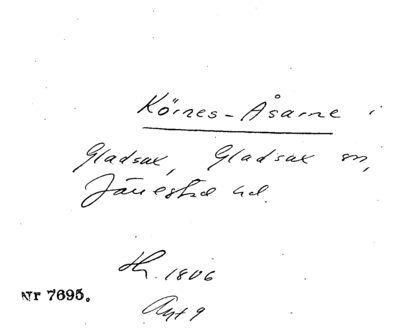 Körnes-Åsarne i
Gladsax, Gladsax sn,
Järrestad hd.
th. 1806
Nr 7695.
Avt 9